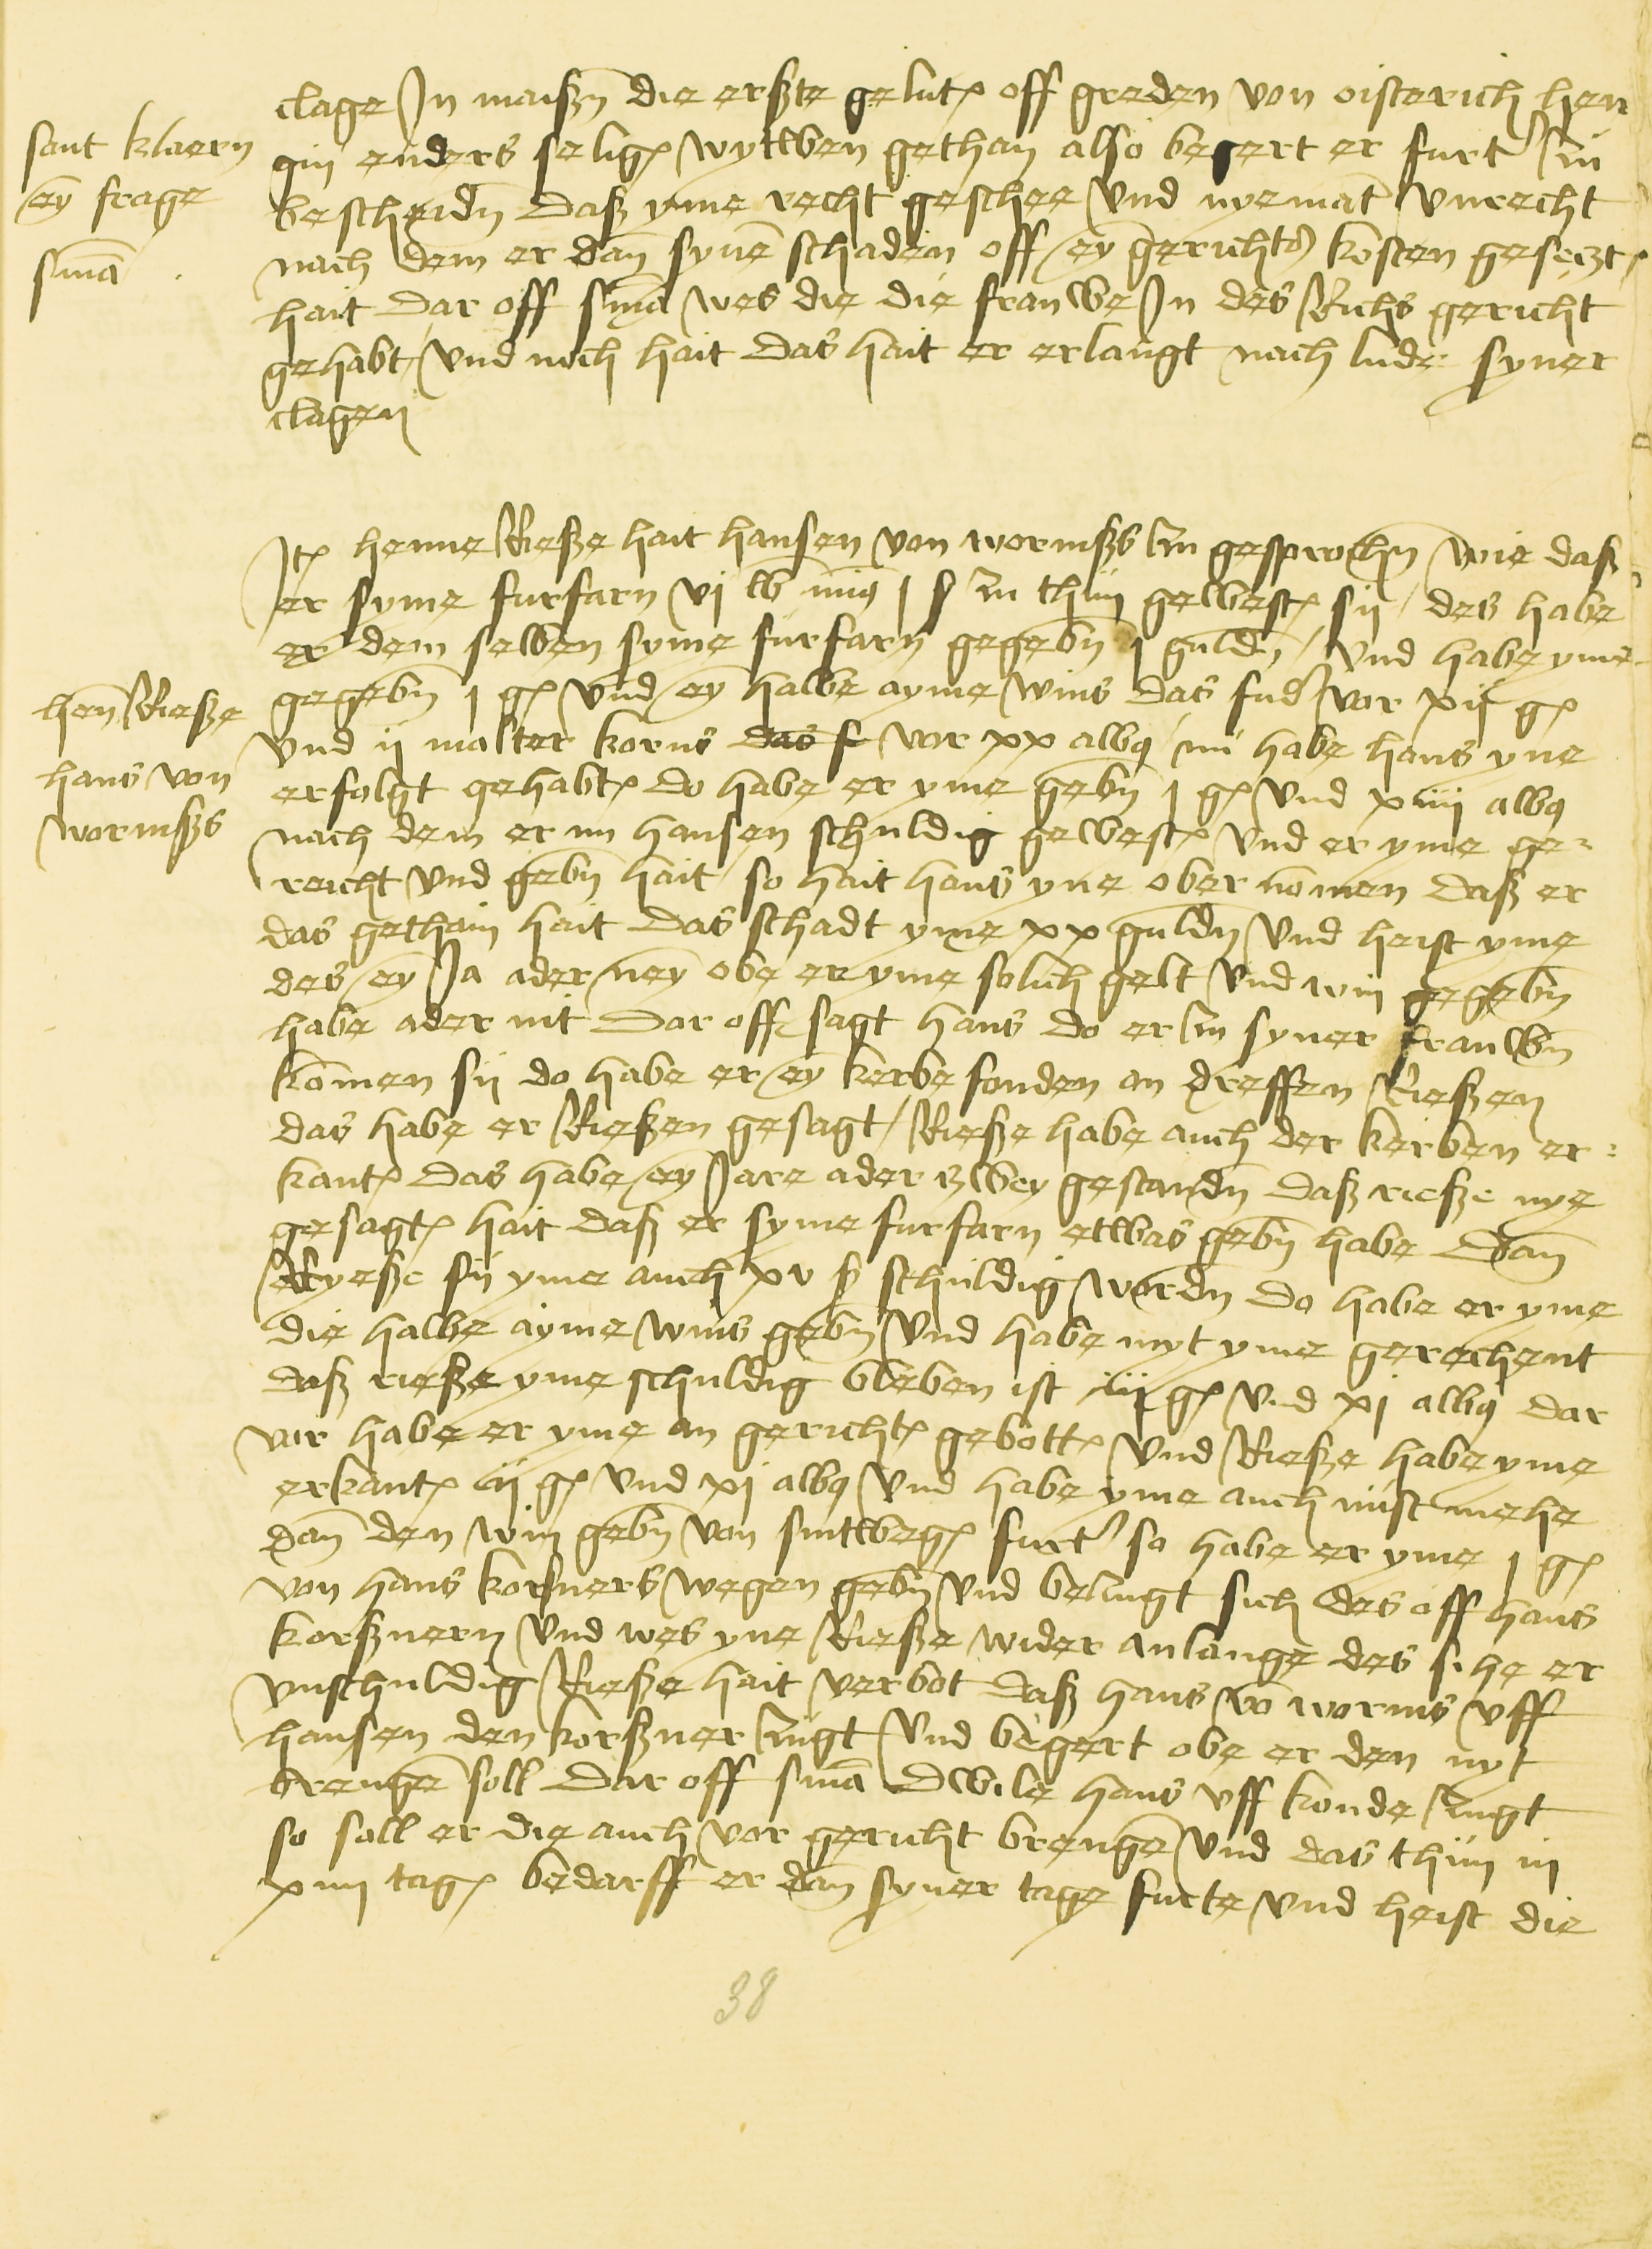 clage Jn maißn die erßte gelut off greden von oisterich hen
gin enders selig wytwen gethan also begert er furt zu
sant klaern
ey frage
sniā
bescheidn daß yme recht geschee und nyemāt unrecht
nach dem er dan synē schaden off ey gericht kosten gesetzt
hait dar off sniā wes die die frauwe Jn des Richs gericht
gehabt und noch hait das hait er erlangt nach lude syner
clagen
Jt henne Rieße hait hansen von wormßs zu gesprochn wie daß
er syme furfarn vj lb j ß zu thun gewest sij des habe
er dem selben syme furfarn gegebn j guldn und habe yme
henn Rieße
hans von
wormßs
gegebn j g und ey halbe ayme wins das fud vor xij g
und ij malter korns das f vor xx albq nu habe hans yne
erfolgt gehabt do habe er yme gebn j g und xiiij albq
nach dem er nu hansen schuldig gewest und er yme ge-
reicht und gebn hait so hait hans yne ober nōmen daß er
das gethain hait das schadt yme xx guldn und heist yme
des ey Ja ader ney obe er yme solich gelt und win gegebn
habe ader nit dar off sagt hans do er zu syner frauwn
kōmen sij do habe er ey kerbe fonden an dreffen Rießen
das habe er Rießen gesagt Rieße habe auch der kerben er-
kant das habe ey Jare ader zwey gestandn daß rieße nye
gesagt hait daß er syme furfarn etwas gebn habe dan
Ryeße sij yme auch xv ß schuldig wordn do habe er yme
die halbe ayme wins gebn und habe myt yme gerechent
daß rieße yme schuldig bleben ist iij g und xj albq dar
vor habe er yme an gericht gebott und Rieße habe yme
erkant iij g und xj albq und habe yme auch nust mehe
dan den win gebn von sintweg furt so habe er yme j g
von hans korsners wegen gebn und bezugt sich des off hans
korßnern und wes yne Rieße wider anlange des sihe er
unschuldig Rieße hait verbot daß hans vō worms uff
hansen den korßner zugt und begert obe er den nyt
brengē soll dar off sniā dwile hans uff konde zugt
so soll er die auch vor gericht brengē und das thun in
xiiij tag bedarff er dan syner tage furte und heist die
38